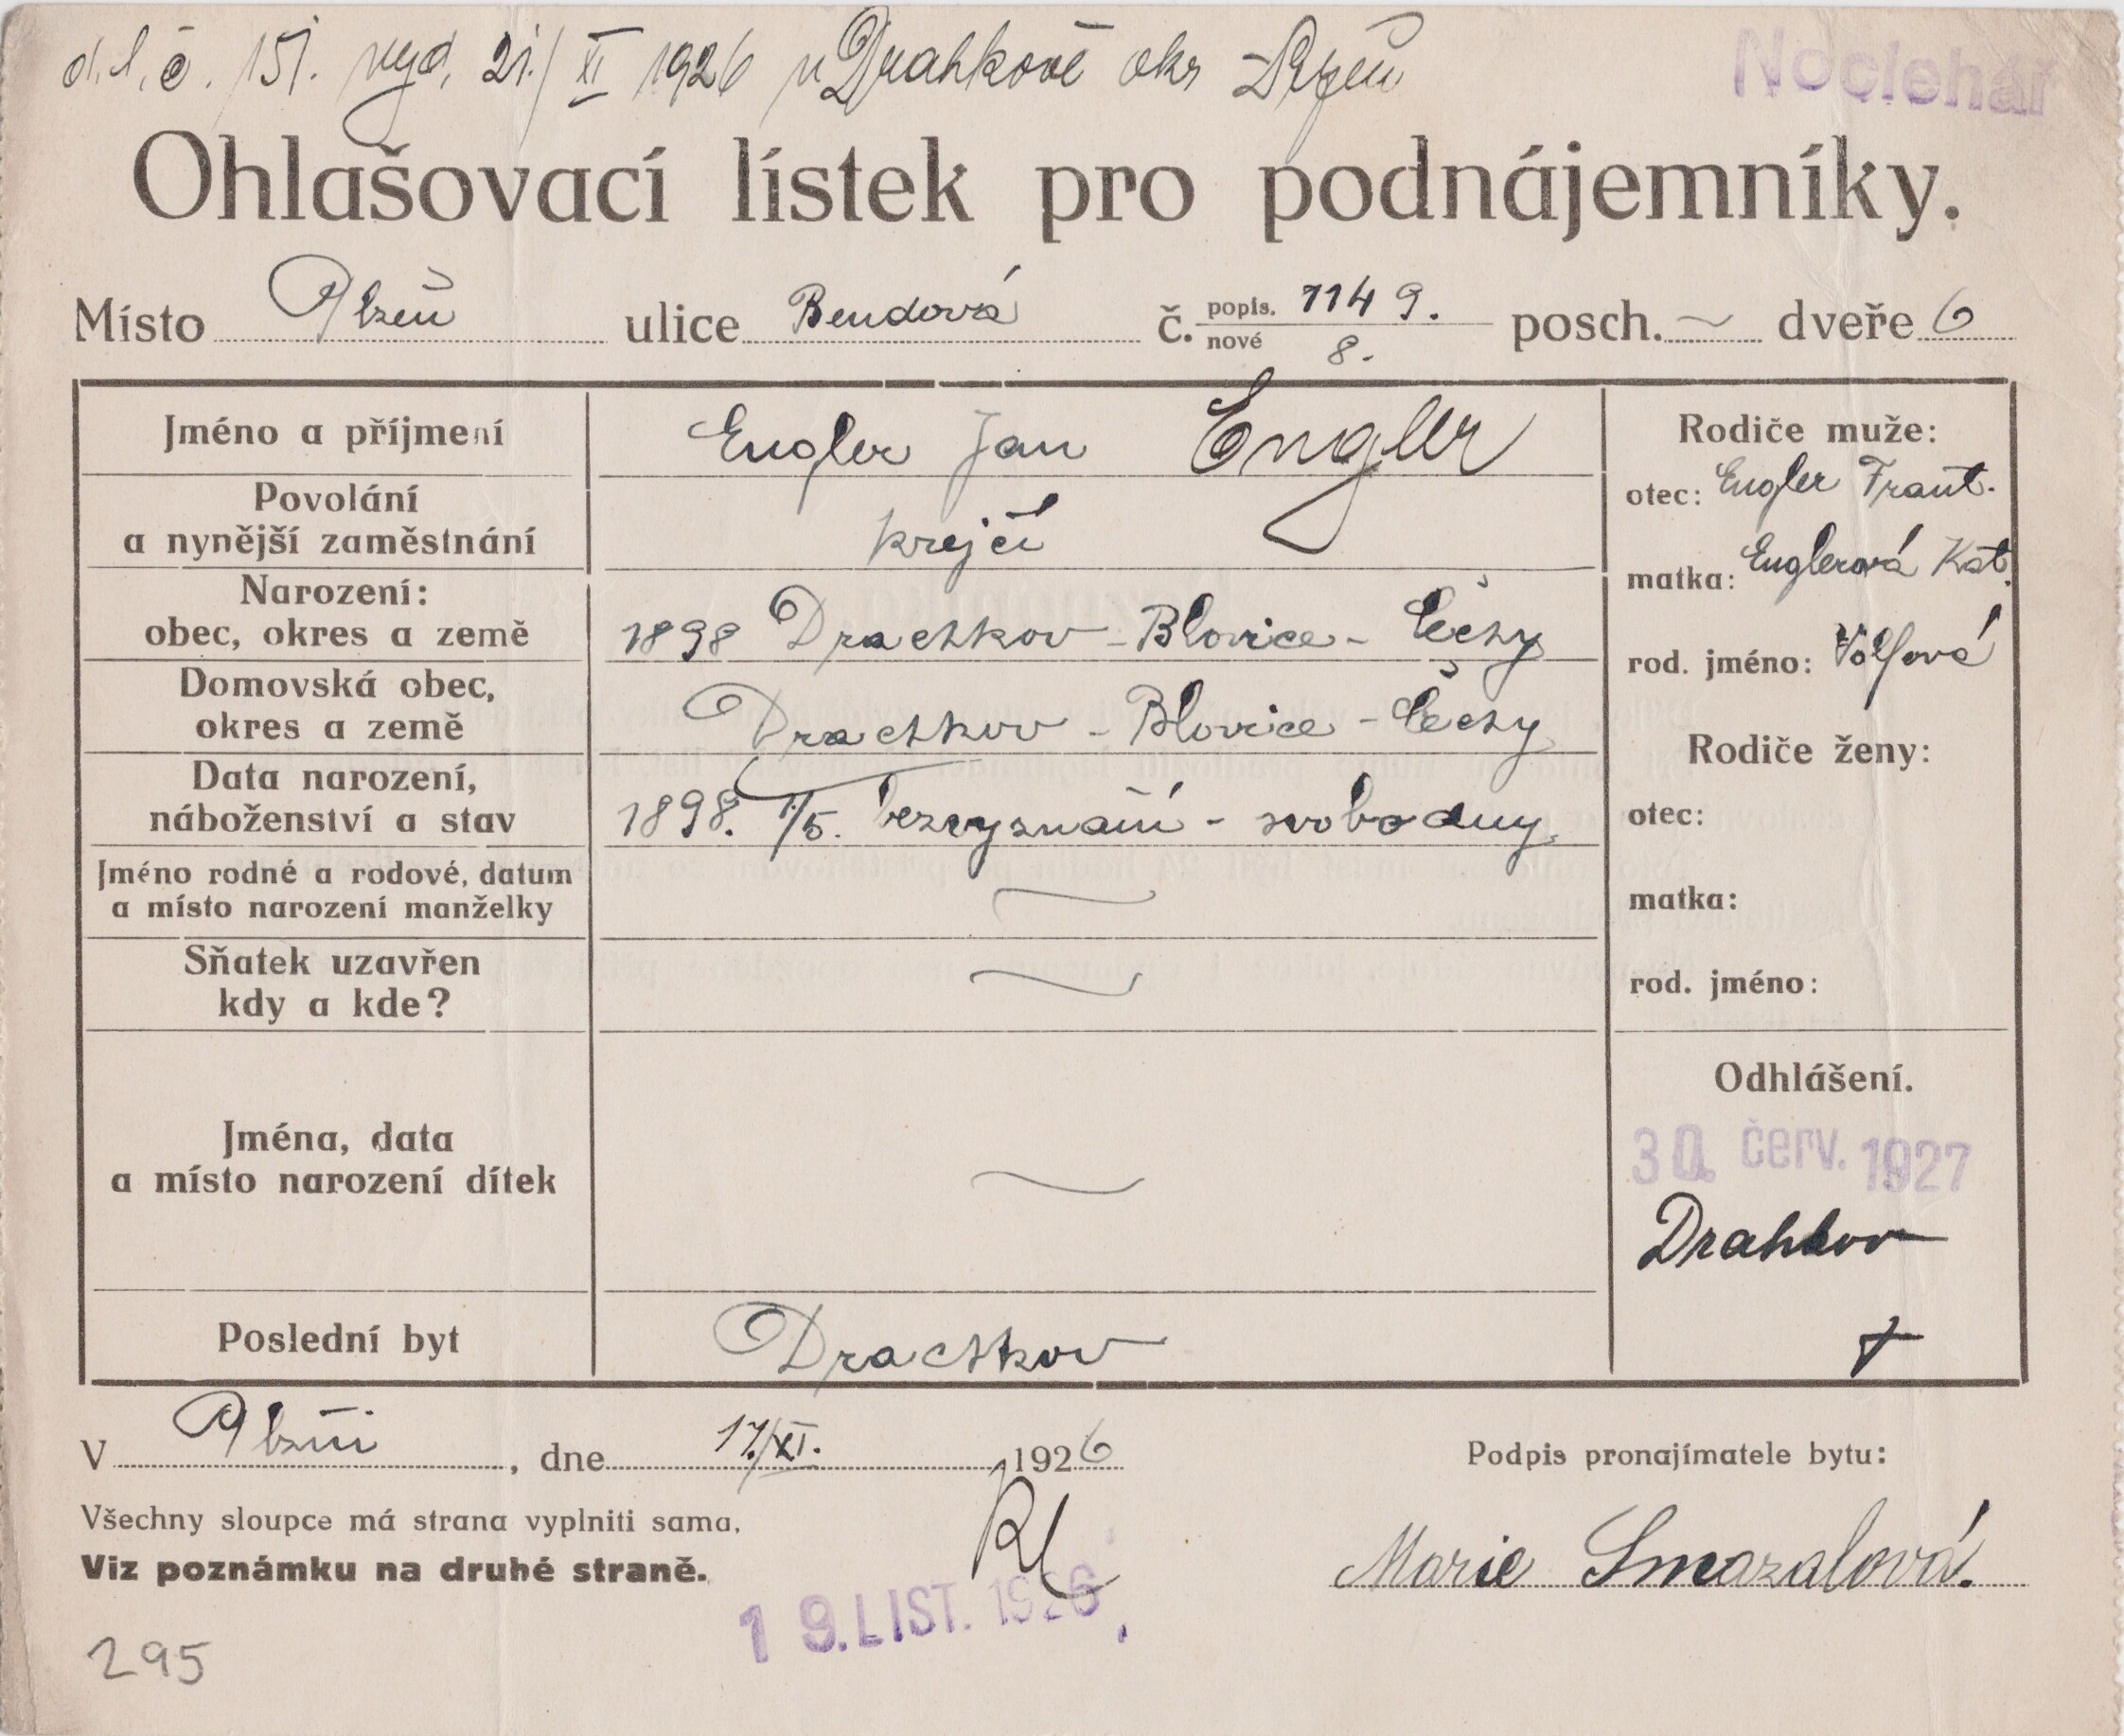 d. l. č. 151. vyd. 21./XI 1926 v Drahkově okr
Noclehář
Ohlašovací lístek pro podnájemníky.
Místo Plzeň ulice Bendová č. popis. 1149. nové 8. posch. ~ dveře 6
Jméno a příjmení Engler Jan Engler
Povolání
a nynější zaměstnání krejčí
Narození:
obec, okres a země 1898 Drachkov - Blovice - Čechy
Domovská obec,
okres a země Drachkov - Blovice - Čechy
Data narození,
náboženství a stav 1898. 1/5. bezvyznání - svobodny.
Jméno rodné a rodové, datum
a místo narození manželky ~
Sňatek uzavřen
kdy a kde? ~
Jména, data
a místo narození dítek ~
Poslední byt Drachkov
Rodiče muže:
otec: Engler Frant.
matka: Englerová Kat.
rod. jméno: Volfová
Rodiče ženy:
otec:
matka:
rod. jméno:
Odhlášení.
30. červ. 1927
Drahkov
V Plzni, dne 17./XI. 1926
Podpis pronajímatele bytu:
Všechny sloupce má strana vyplniti sama.
Viz poznámku na druhé straně.
Marie Smazalová.
19. LIST. 1926
295